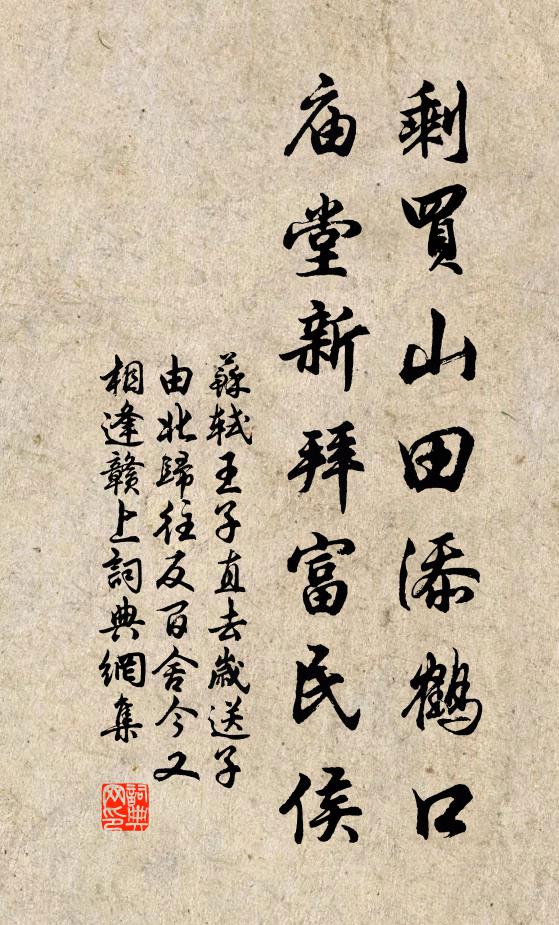 剩買山田添鶴口
庙堂新拜富民侯
蘇軾王子直去歲送子
由北歸往反百舍今又
相逢贛上詞典網集
詞典
网印